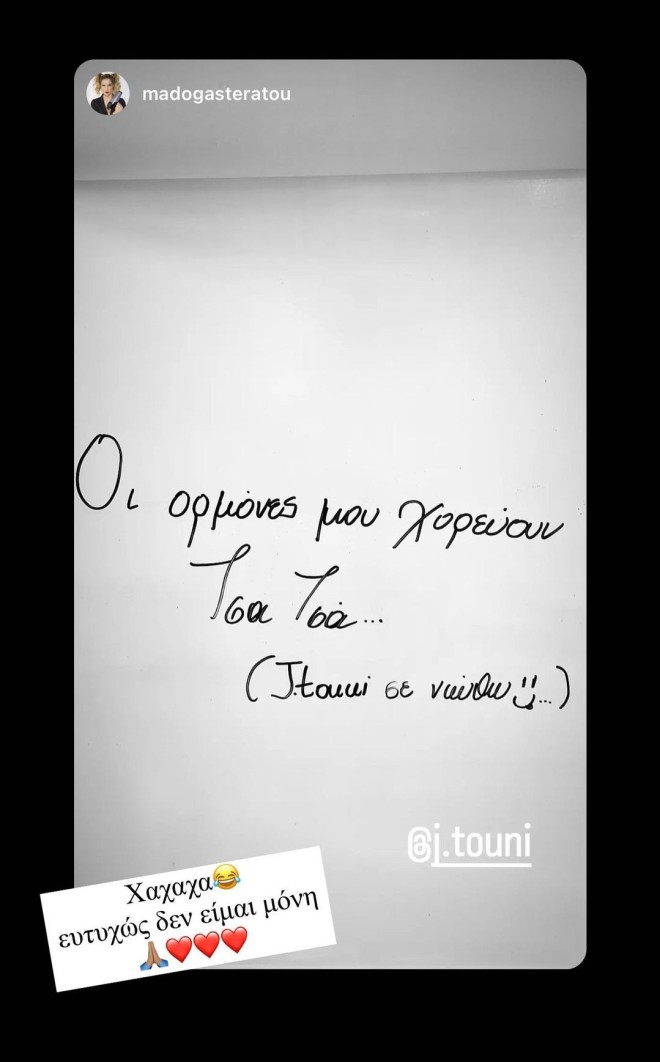 madogasteratou
Οι ορμόνες μου χορεύουν
Τσα Τσά...
(J.touni σε νιώθω...)
@j.touni
Χαχαχα😂
ευτυχώς δεν είμαι μόνη
🙏🏽❤️❤️❤️